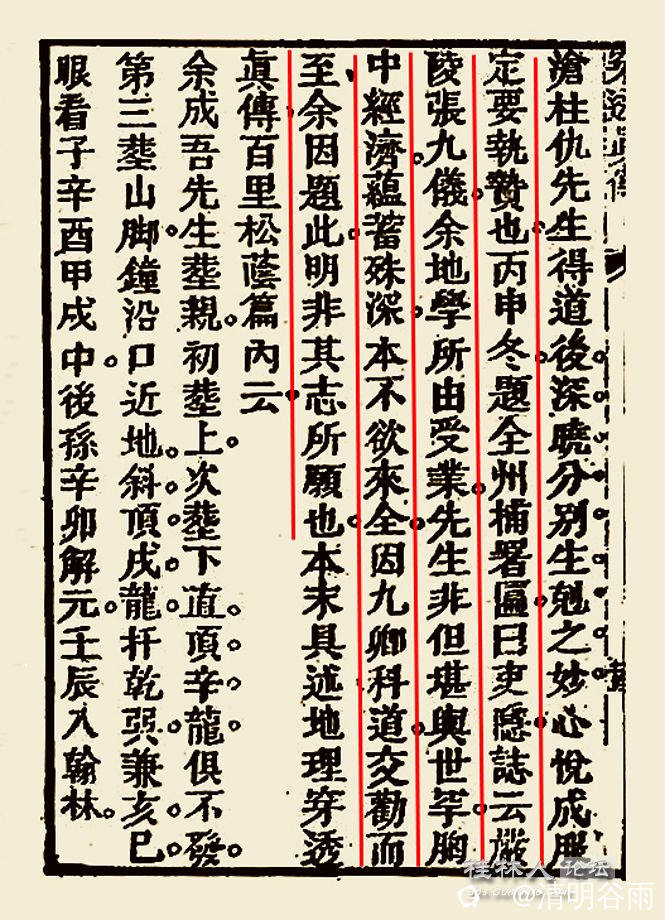 滄柱仇先生得道後深曉分别生尅之妙心悅成服
定要執贄也丙申冬題全州捕署匾曰吏隱誌云嚴
陵張九儀余地學所由受業先生非但堪輿世罕胸
中經濟蘊蓄殊深本不欲來全因九卿科道交勸而
至余因題此明非其志所願也本末具述地理穿透
眞傳百里松蔭篇內云
余成吾先生塟親初塟上次塟下直頂辛龍俱不發
第三塟山脚鐘沿口近地斜頂戌龍扦乾巽兼亥巳
眼看子辛酉甲戌中後孫辛卯解元壬辰入翰林
桂林人论坛
@清明谷雨